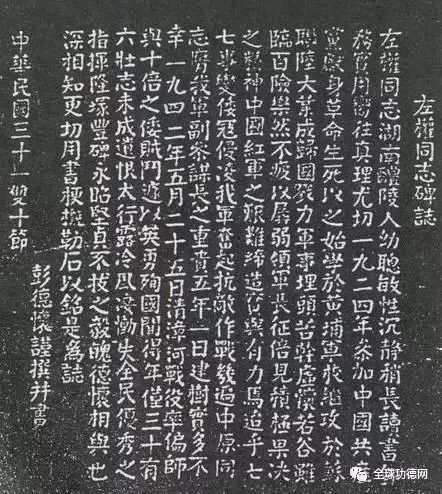 左權同志碑誌
左權同志湖南醴陵人幼聰敏性沉静稍長讀書
務實用嚮往真理尤切一九二四年參加中國共產
黨獻身革命生死以之始學於黃埔軍校繼攻於蘇
聯陸大業成歸國戮力軍事埋頭苦幹虛懷若谷雖
臨百險樂然不疲以孱弱領軍長征倍見積極果決
之精神中國紅軍之艱難締造實與有力焉迨乎七
七事變倭寇侵凌我軍奮起抗敵作戰幾遍中原同
志膺我軍副參謀長之重責五年一日建樹實多不
幸一九四二年五月二十五日清漳河戰役率偏師
與十倍之倭賊鬥遽以英勇殉國聞得年僅三十有
六壯志未成遺恨太行露冷風淒慟失全民優秀之
指揮隆塚豐碑永昭堅貞不拔之毅魄德懷相與也
深相知更切用書梗概勒石以銘是為誌
彭德懷謹撰并書
中華民國三十一雙十節
全球功德网